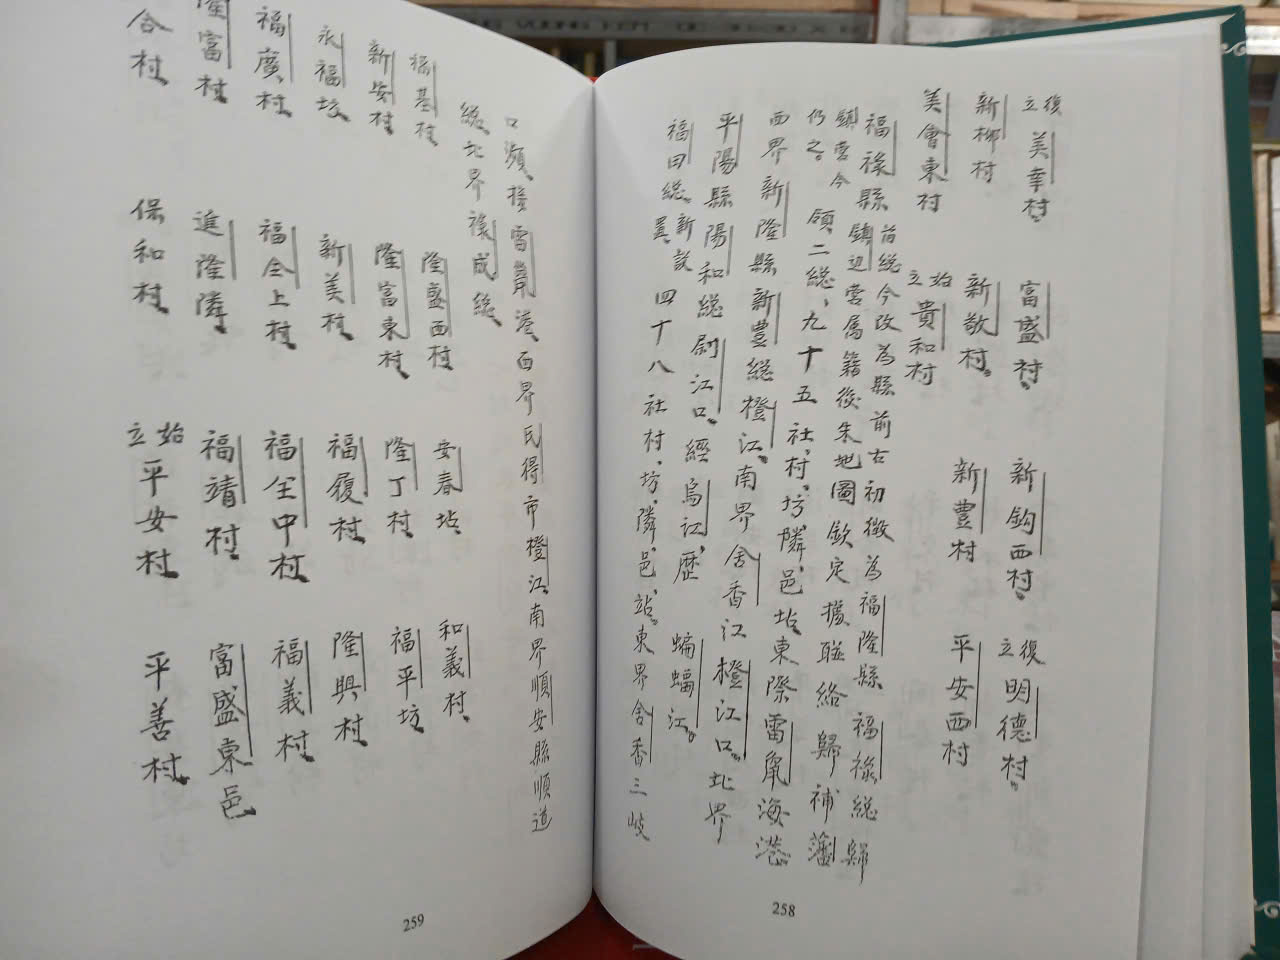 復立 美幸村 富盛村 新鈎西村 復立 明德村
新柳村 新敬村 新豊村 平安西村
美會東村 始立 貴和村
福祿縣 前総今改為縣前古初徵為福隆縣福祿総歸
鎮營今鎮边營属籍後朱地圖欽定據聯絡歸補藩
仍之 領二総九十五社村坊隣邑坫東際雷 海港
西界新隆縣新豊総橙江南界舍香江橙江口北界
平陽縣陽和総尉江口經烏江歷蝙蝠江
福田総 新設置 四十八社村坊隣邑站東界舍香三岐
258
口瀕接雷 港西界氏得市橙江南界順安縣順道
総北界祿成総
福基村 隆盛西村 安春坫 和義村
新安村 隆富東村 隆丁村 福平坊
永福坊 新美村 福履村 隆興村
福廣村 福全上村 福全中村 福義村
隆富村 進隆隣 福靖村 富盛東邑
合村 保和村 始立 平安村 平善村
259